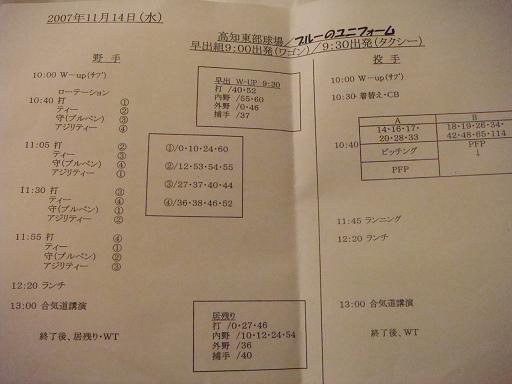 2007年11月14日(水)
高知東部球場/ブルーのユニフォーム
早出組9:00出発(ワゴン)/9:30出発(タクシー)
野 手
10:00 W-up(サブ)
ローテーション
10:40 打 ①
ティー ②
守(ブルペン) ③
アジリティー ④
11:05 打 ②
ティー ③
守(ブルペン) ④
アジリティー ①
11:30 打 ③
ティー ④
守(ブルペン) ①
アジリティー ②
11:55 打 ④
ティー ①
守(ブルペン) ②
アジリティー ③
12:20 ランチ
13:00 合気道講演
終了後、居残り・WT
早出 W-UP 9:30
打 /40・52
内野 /55・60
外野 /0・46
捕手 /37
①/0・10・24・60
②/12・53・54・55
③/27・37・40・44
④/36・38・46・52
居残り
打 /0・27・46
内野 /10・12・24・54
外野 /36
捕手 /40
投 手
10:00 W-up(サブ)
10:30 着替え・CB
A B
14・16・17・ 18・19・26・34・
20・28・33 42・48・65・114
10:40 ピッチング PFP
↓
PFP
11:45 ランニング
12:20 ランチ
13:00 合気道講演
終了後、WT